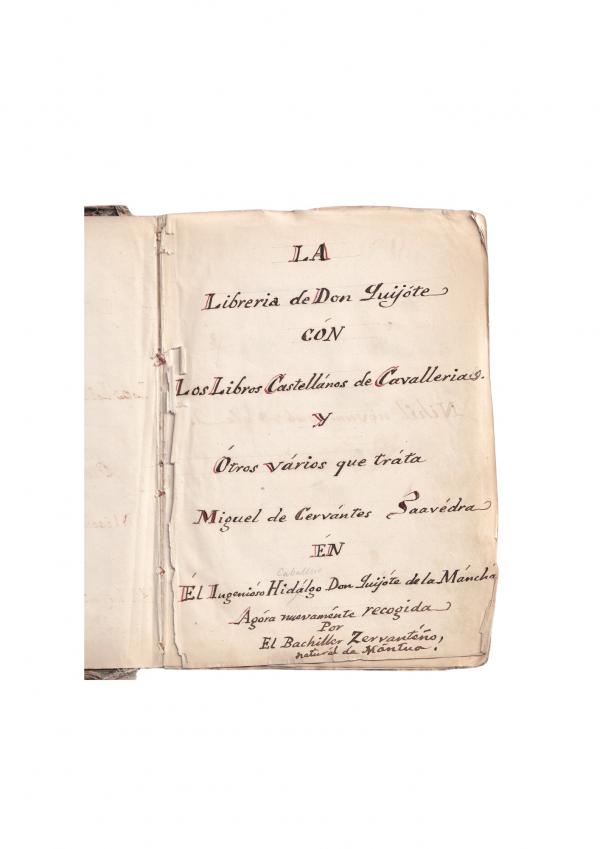 LA
Libreria de Don Quijóte
CÓN
Los Libros Castellános de Cavallerias.
Y
Ótros vários que tráta
Miguel de Cervántes Saavédra
ÉN
Caballero
Él Ingenióso Hidálgo Don Quijóte de la Máncha
Agóra nuevaménte recogida
Por
El Bachiller Zervantéño,
naturál de Mántua.